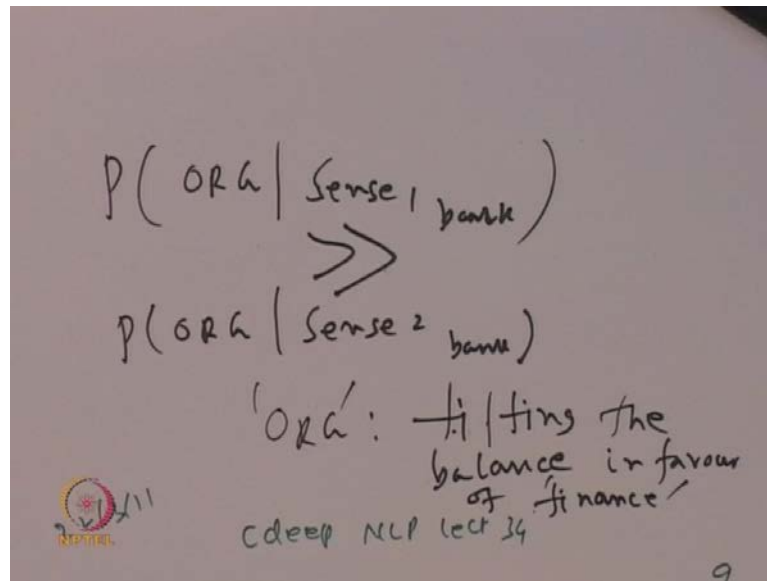 P( ORG | Sense1 bank )
>>
P(ORG | Sense 2 bank)
'ORG': tilting the
balance in favour
of 'finance'
NPTEL
cdeep NLP lect 34
9